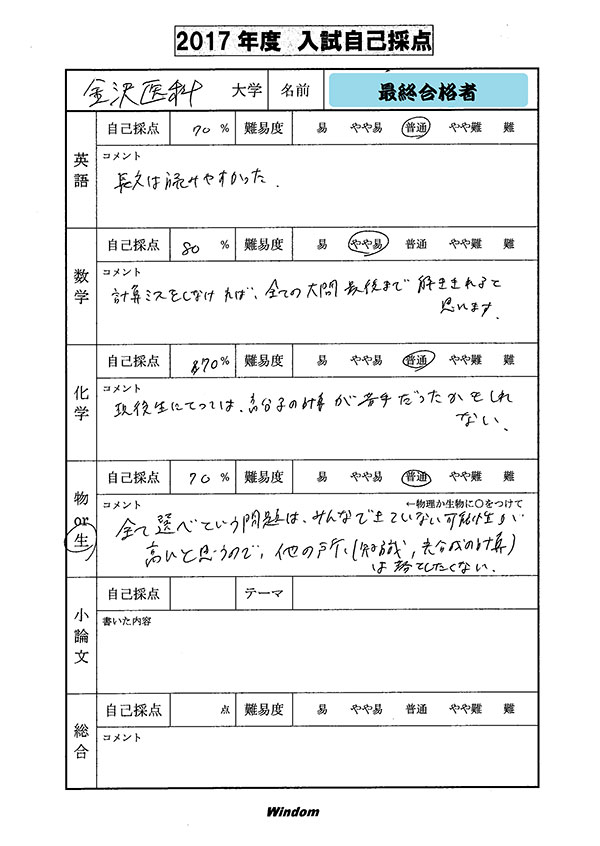 2017年度 入試自己採点
金沢医科 大学 名前 最終合格者
英語 自己採点 70 % 難易度 易 やや易 普通 やや難 難
コメント
長文は読みやすかった.
数学 自己採点 80 % 難易度 易 やや易 普通 やや難 難
コメント
計算ミスをしなければ、全ての大問最後まで解ききれると
思います.
化学 自己採点 70 % 難易度 易 やや易 普通 やや難 難
コメント
現役生にとっては、高分子の計算が苦手だったかもしれ
ない.
物or生 自己採点 70 % 難易度 易 やや易 普通 やや難 難
コメント ←物理か生物に〇をつけて
全て選べという問題は、みんなできていない可能性が
高いと思うので、他の所(知識,光合成の計算)
は落としたくない.
小論文 自己採点 テーマ
書いた内容
総合 自己採点 点 難易度 易 やや易 普通 やや難 難
コメント
Windom